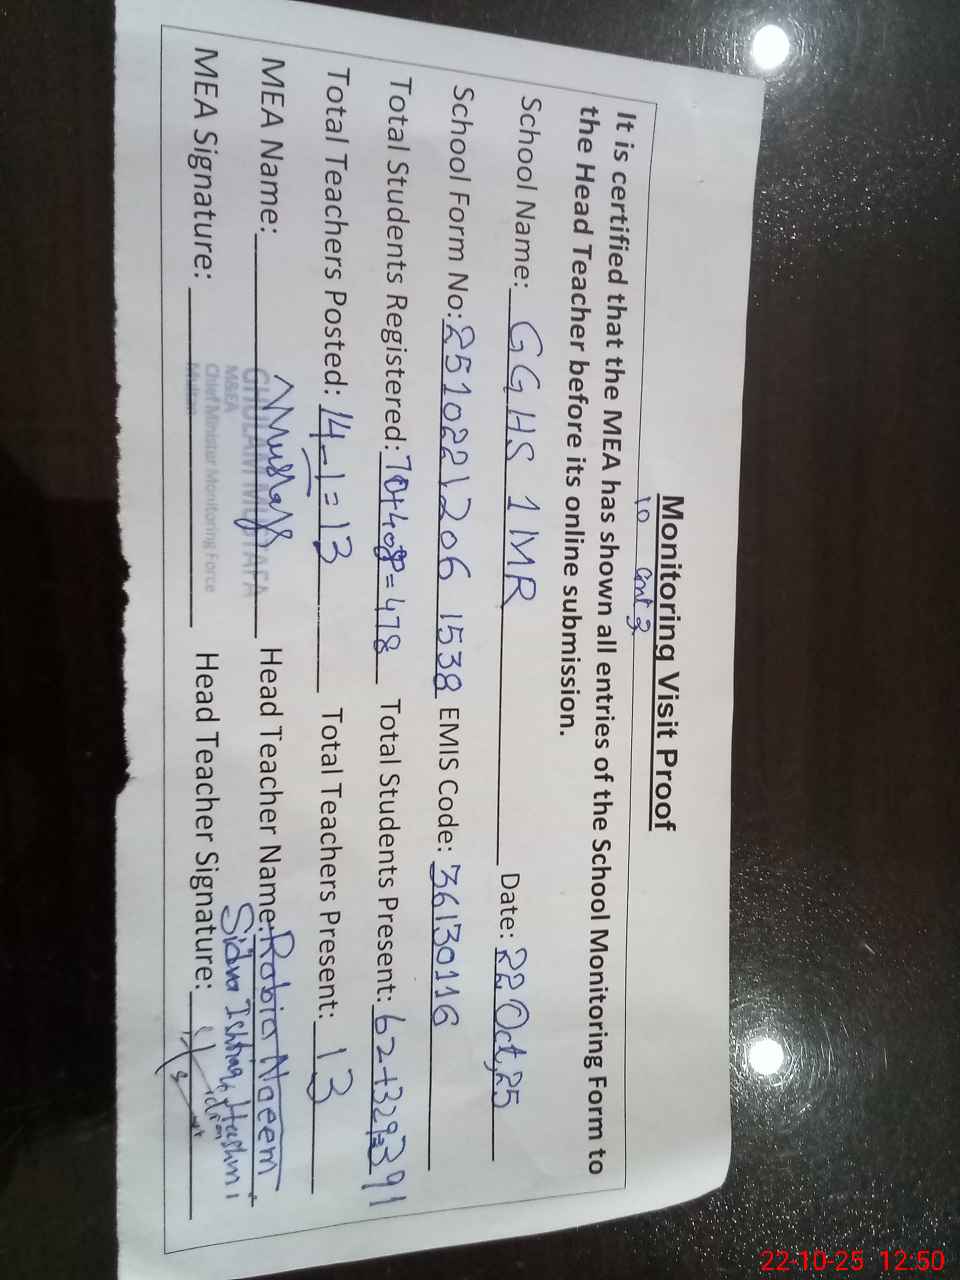 Monitoring Visit Proof
It is certified that the MEA has shown all entries of the School Monitoring Form to
the Head Teacher before its online submission.
School Name: GGHS 1MR Date: 22 Oct, 25
School Form No: 2510221206 1538 EMIS Code: 36130116
Total Students Registered: 70+408=478 Total Students Present: 62+329=391
Total Teachers Posted: 14-1=13 Total Teachers Present: 13
MEA Name: Head Teacher Name: Rabia Naeem
GHULAM MUSTAFA
M&EA
Chief Minister Monitoring Force
Multan
Sidra Ishtiaq Hashmi
MEA Signature: Head Teacher Signature:
22-10-25 12:50